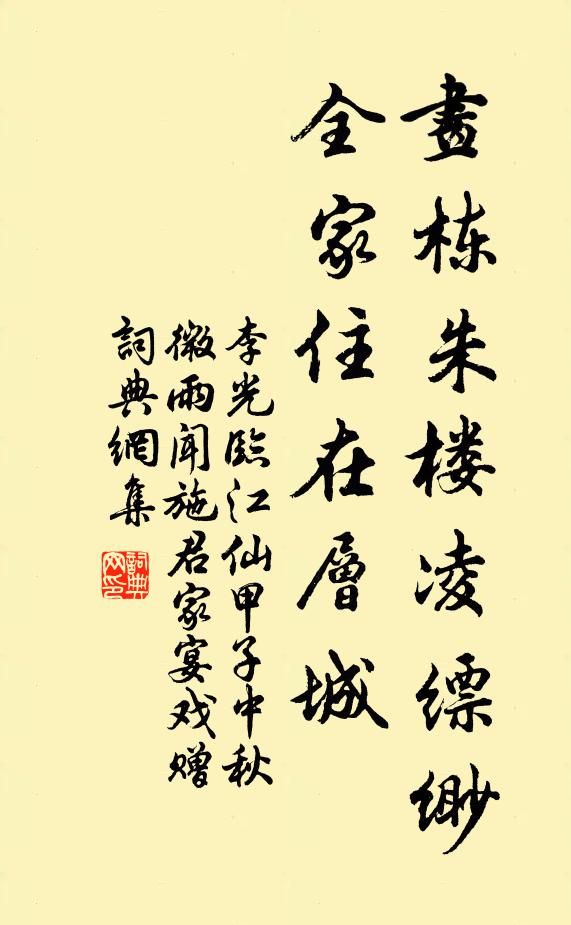 畫栋朱楼凌缥缈
全家住在層城
李光臨江仙甲子中秋
微雨闻施君家宴戏赠
詞典網集
詞典网印